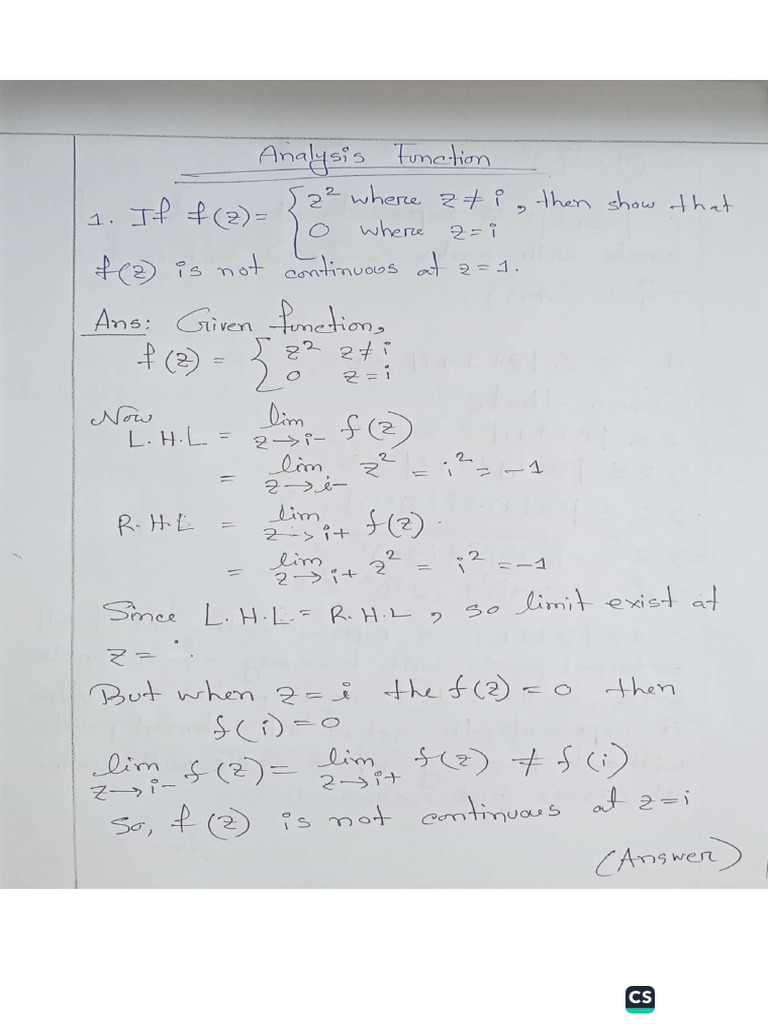 Analysis Function
1. If f(z) = { z² where z ≠ i , then show that
0 where z = i
f(z) is not continuous at z = 1.
Ans: Given function,
f(z) = { z² z ≠ i
0 z = i
Now
L.H.L = lim z→i- f(z)
= lim z→i- z² = i² = -1
R.H.L = lim z→i+ f(z).
= lim z→i+ z² = i² = -1
Since L.H.L = R.H.L , so limit exist at
z = i.
But when z = i the f(z) = 0 then
f(i) = 0
lim z→i- f(z) = lim z→i+ f(z) ≠ f(i)
So, f(z) is not continuous at z = i
(Answer)
CS